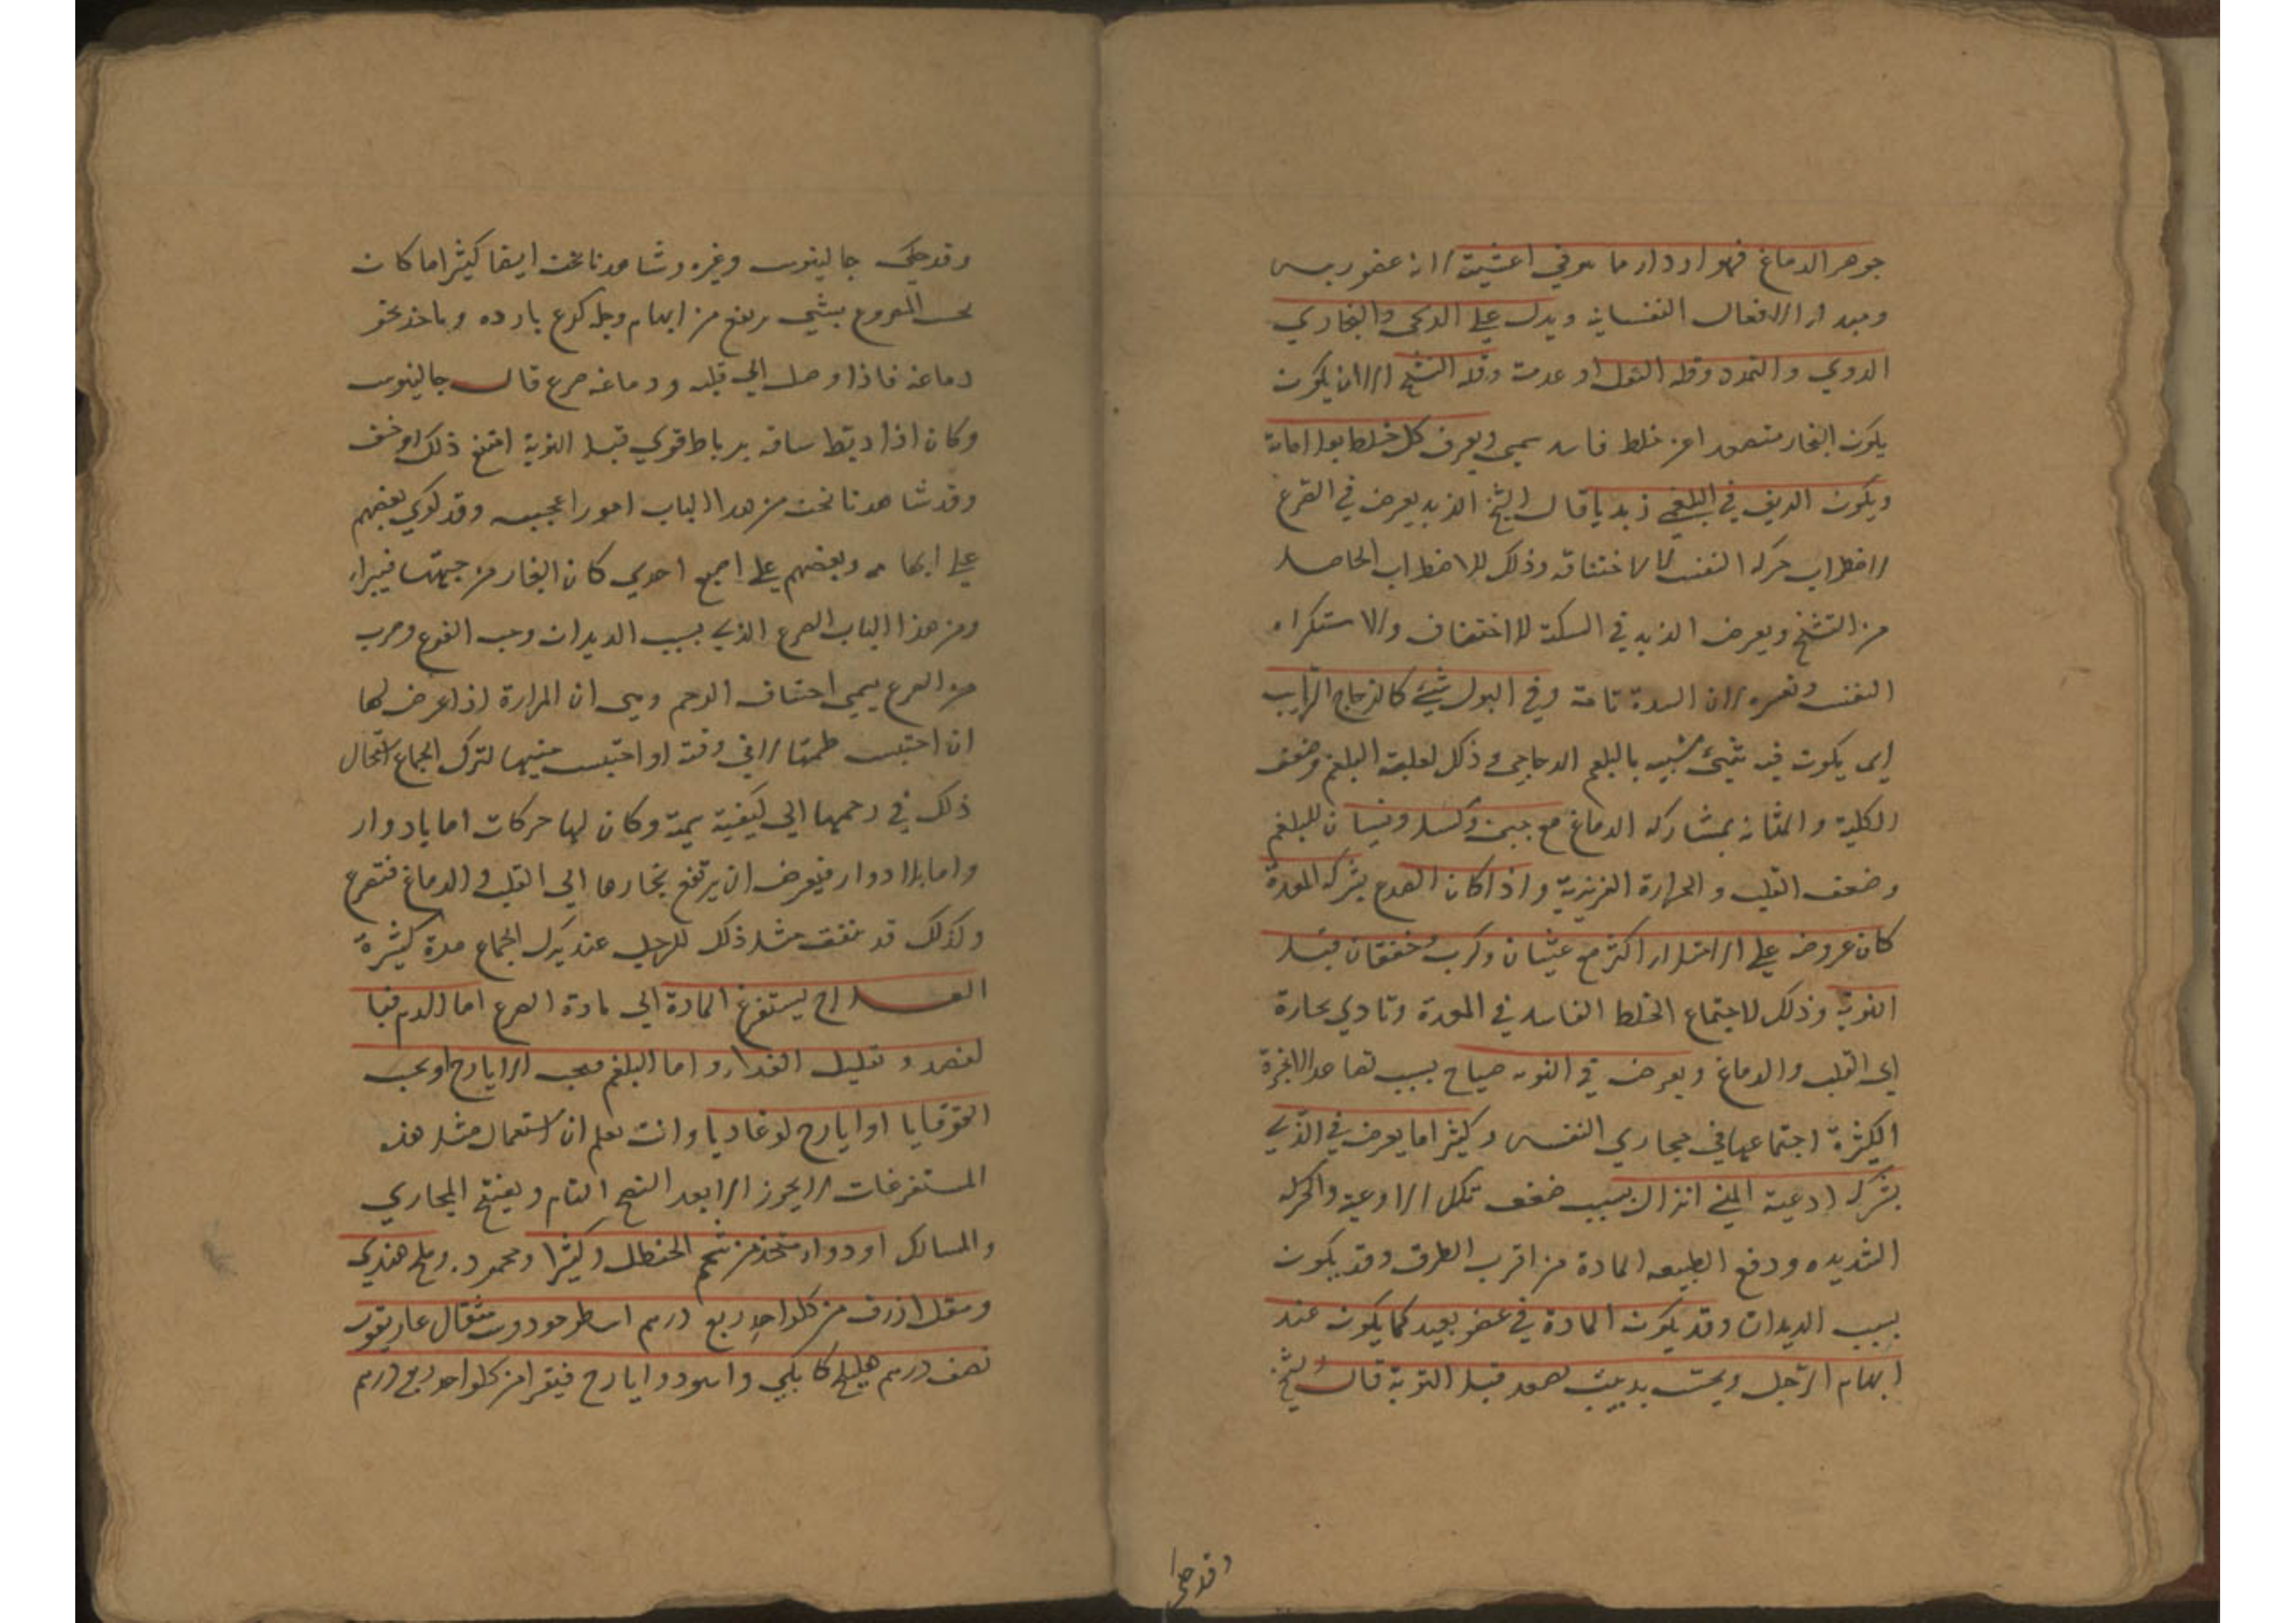 جوهر الدماغ فهو اردا مما هو في اغشيته لانه عضو رييس
ومبدا الافعال النفسانيه ويدل علي الريحي والبخاري
الدوي والتمدد وقله الثقل او عدمه وقله التشنج الا ان يكون
يكون البخار متصعدا عن خلط فاسد سمي ويعرف كل خلط بعلاماته
ويكون الريق في البلغمي زبديا قال الشيخ الزبد يعرض في الصرع
لاضطراب حركه النفس لا لاختناقه وذلك للاضطراب الحاصل
من التشنج ويعرض الزبد في السكتة للاختناق والاستكراه
النفس وتعسره لان السدة تامة وفي البول شيء كالزجاج الذايب
اي يكون فيه شيء شبيه بالبلغم الزجاجي وذلك لغلبة البلغم وضعف
الكلية والمثانه بمشاركه الدماغ مع جبن وكسل ونسيان للبلغم
وضعف القلب والحرارة الغريزية واذا كان الصرع بشركه المعدة
كان عروضه علي الامتلاء اكثر مع غثيان وكرب وخفقان قبل
النوبة وذلك لاجتماع الخلط الفاسد في المعدة وتادي بخاره
الي القلب والدماغ ويعرض في النوبه صياح بسبب تصاعد الابخرة
الكثيرة اجتماعها في مجاري النفس وكثيرا ما يعرض في الذي
بشركه اوعية المني انزال بسبب ضعف تلك الاوعية والحركه
الشديده ودفع الطبيعه المادة من اقرب الطرق وقد يكون
بسبب الديدان وقد يكون المادة في عضو بعيد كما يكون عند
ابهام الرجل ويحس بدبيب يصعد قبل النوبة قال الشيخ
وقد حكي
وقد حكي جالينوس وغيره وشاهدنا نحن ايضا كثيرا ما كان
يحس المصروع بشي يرتفع من ابهام رجله كريح بارده وياخذ نحو
دماغه فاذا وصل الي قلبه ودماغه صرع قال جالينوس
وكان اذا ربط ساقه برباط قوي قبل النوبة امتنع ذلك او خف
وقد شاهدنا نحن من هذا الباب امورا عجيبه وقد كوي بعضهم
علي ابهامه وبعضهم علي اصبع اخري كان البخار من جهتها فيبراء
ومن هذا الباب الصرع الذي بسبب الديدان وحب القرع وضرب
من الصرع يسمي اختناق الرحم وهي ان المراة اذا عرض لها
ان احتبس طمثها لا في وقته او احتبس منيها لترك الجماع استحال
ذلك في رحمها الي كيفية سمية وكان لها حركات اما بادوار
واما بلا ادوار فيعرض ان يرتفع بخارها الي القلب والدماغ فتصرع
وكذلك قد يتفق مثل ذلك للرجل عند ترك الجماع مدة كثيرة
العلاج يستفرغ المادة الي مادة الصرع اما الدم فبا
لفصد وتقليل الغذاء واما البلغم فبحب الايارج او بحب
القوقايا او ايارج لوغاديا وانت تعلم ان استعمال مثل هذه
المستفرغات لا يجوز الا بعد النضج التام ويفتح المجاري
والمسالك او دواء متخذ من شحم الحنظل وكثيرا ومحموده وملح هندي
ومقل ازرق من كل واحد ربع درهم اسطوخودوس مثقال غاريقون
نصف درهم هليلج كابلي واسود وايارج فيقرا من كل واحد ربع درهم